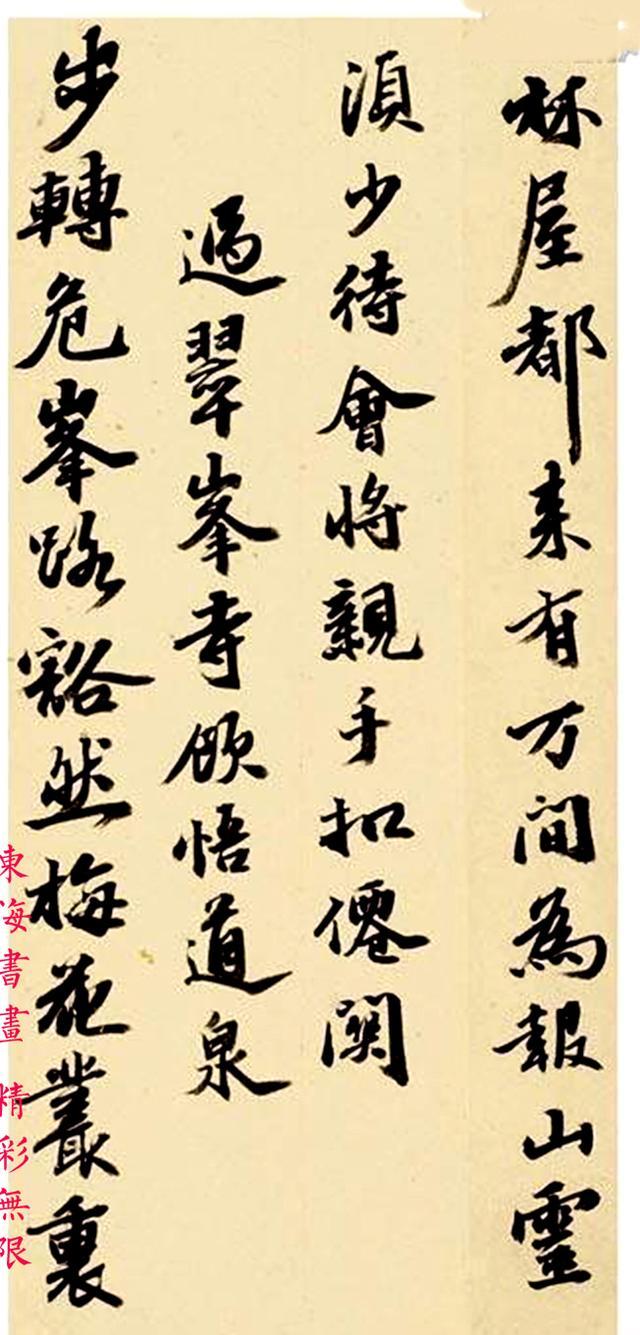 林屋都来有万間為報山靈
須少待會將親手扣僊関
過翠峯寺飲悟道泉
步轉危峯路豁然梅花叢裏
東海書畫 精彩無限